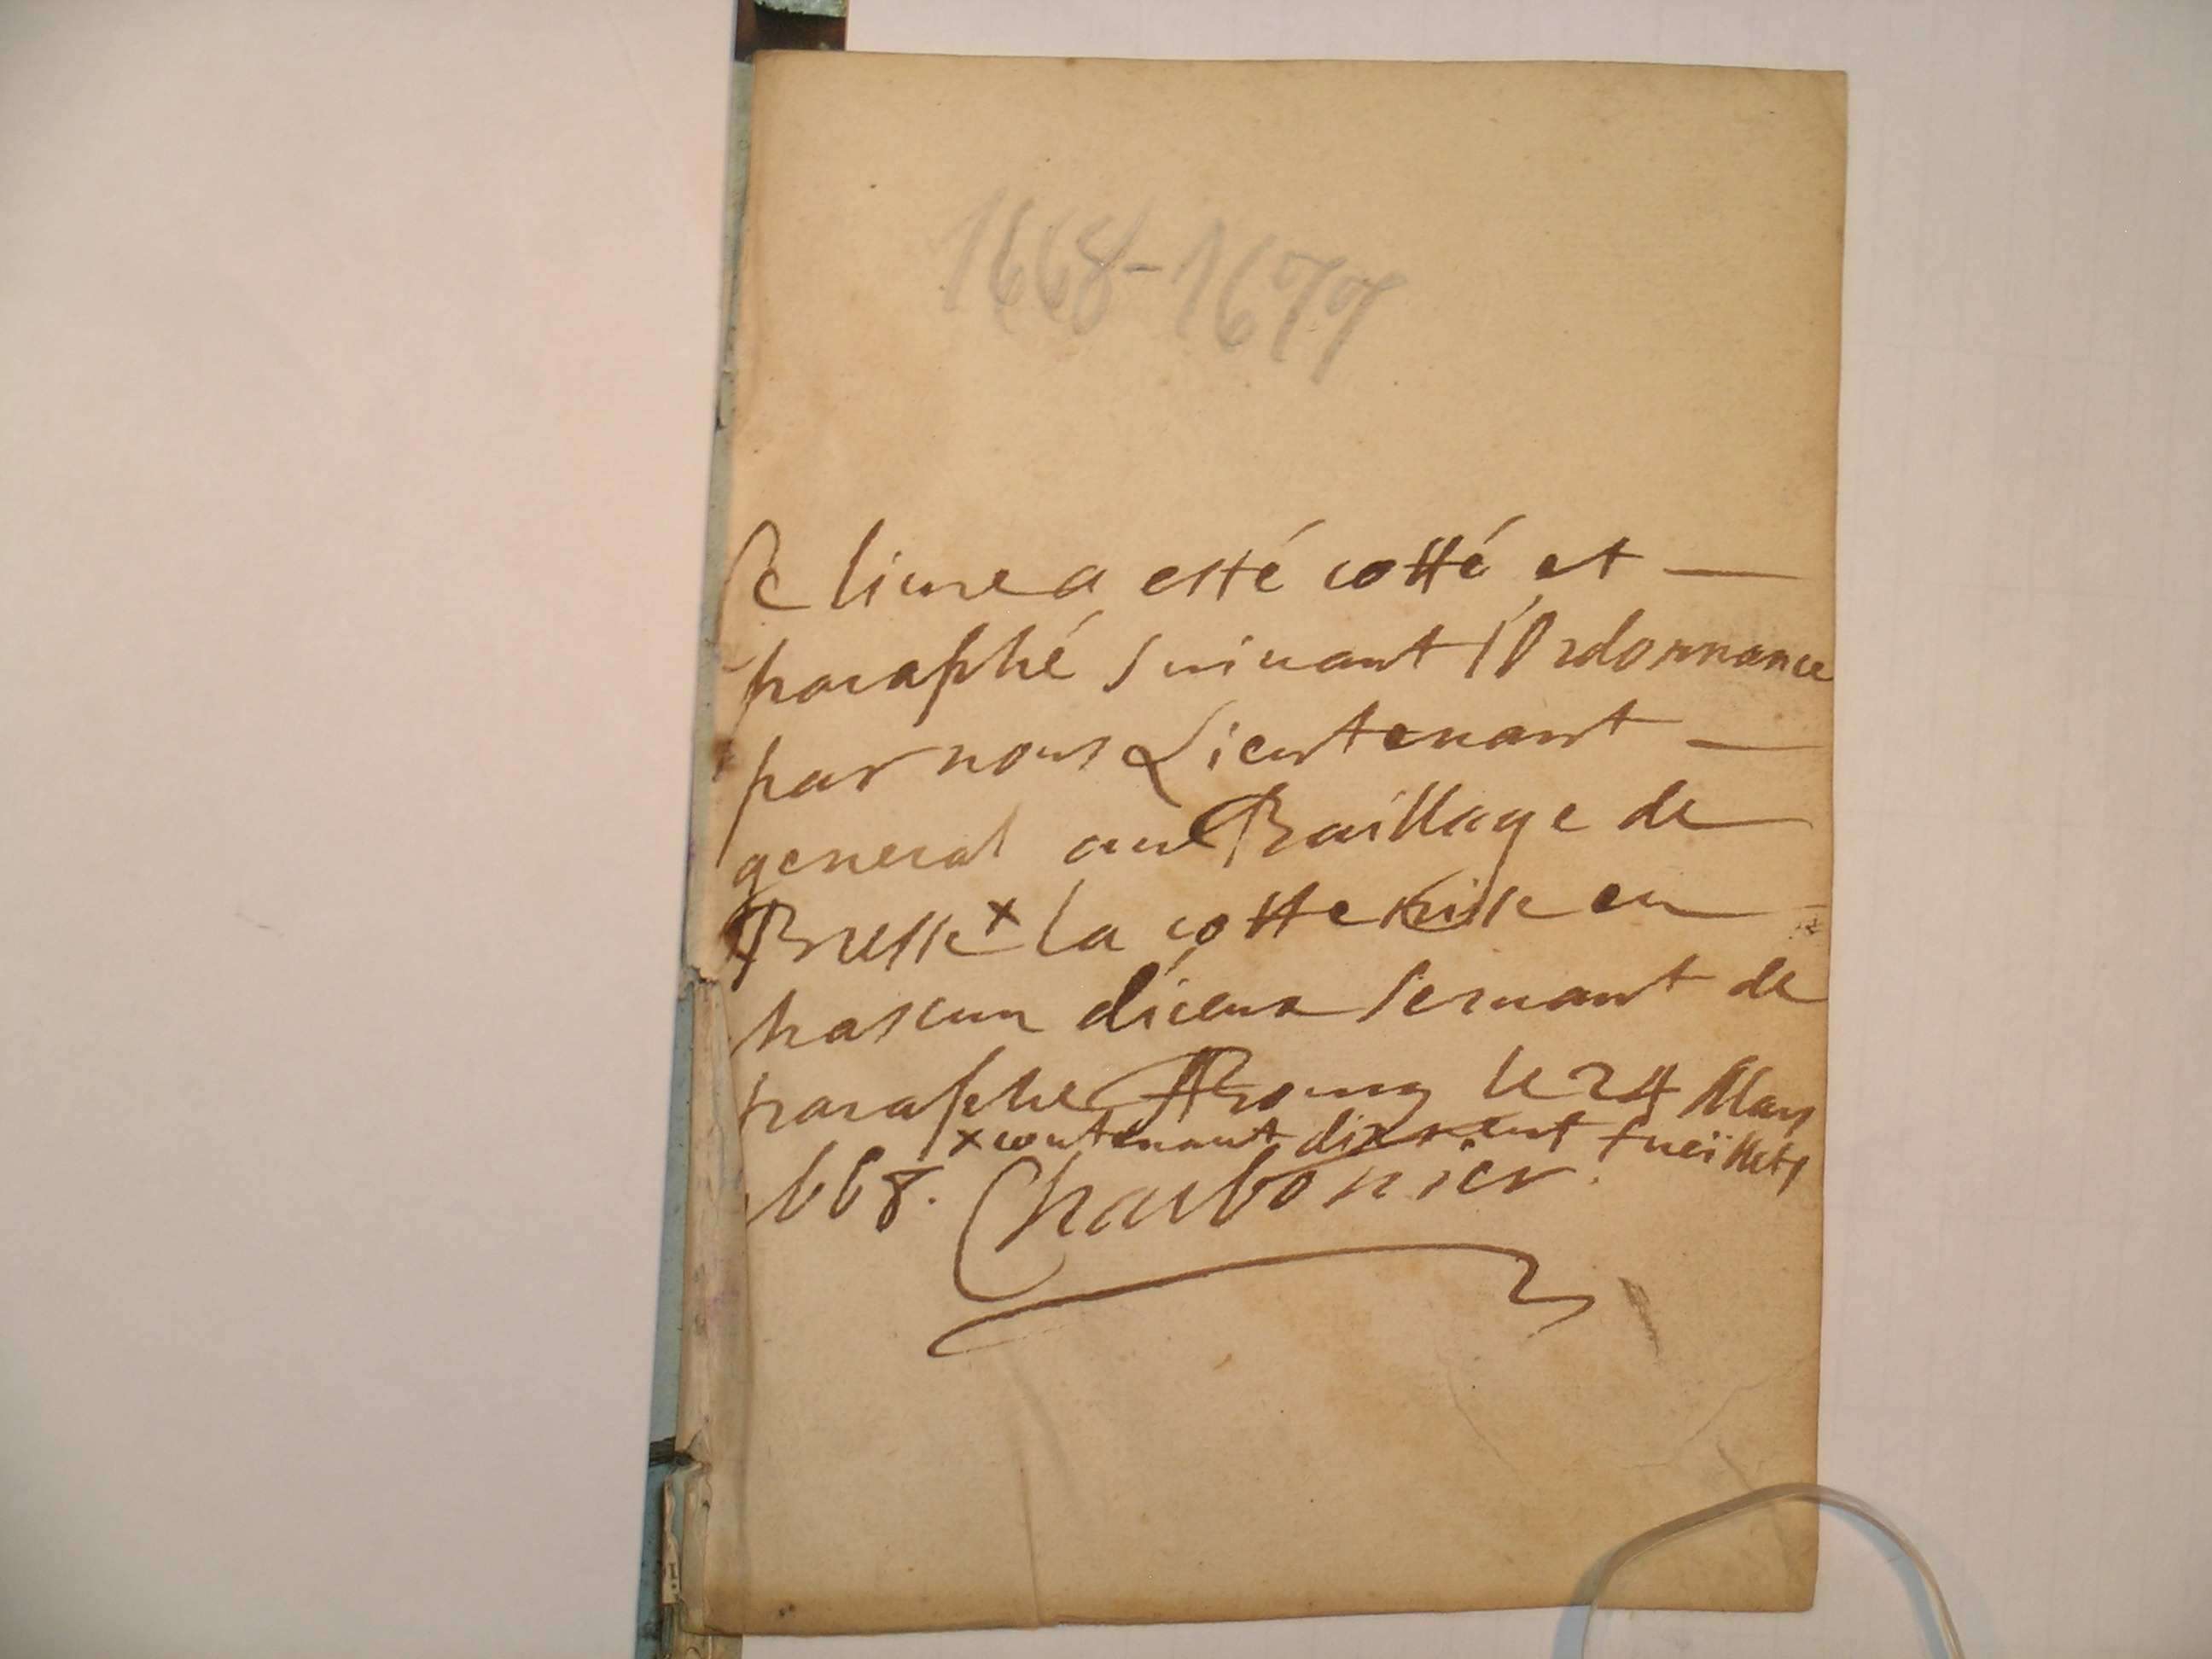 1668-1677
Ce liure a esté cotté et
paraphé suiuant l'Ordonnance
par nous Lieutenant
general au Baillage de
Bresse x la cotte mise en
chascun diceux seruant de
paraphe A Bourg le 24 Mars
x contenant dix sept fueïllets
1668. Charbonier.